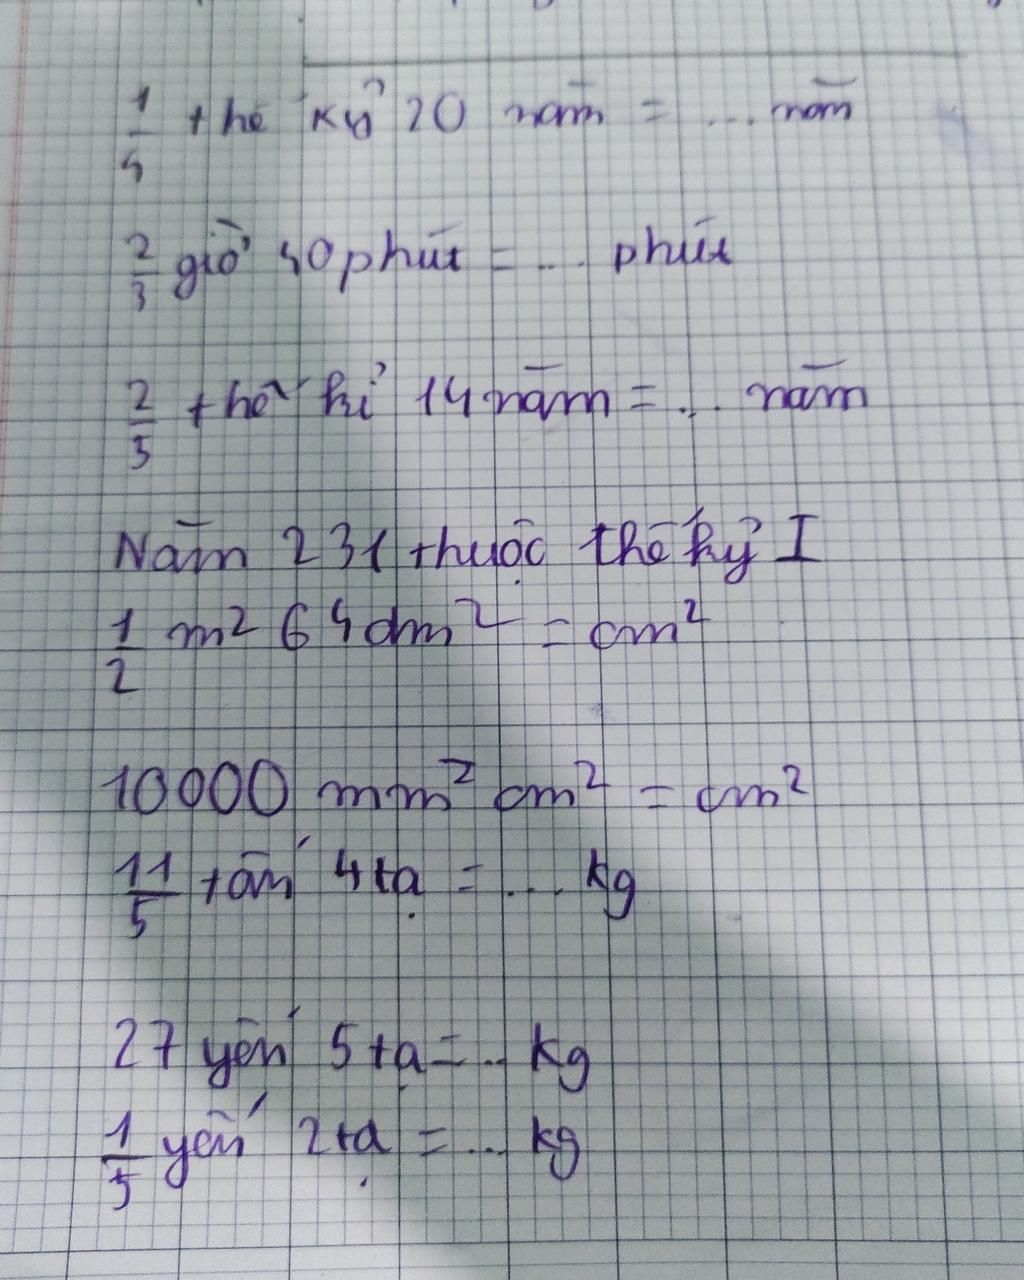 1/4 thế kỷ 20 năm = ... năm
2/3 giờ 40 phút = ... phút
2/5 thế kỉ 14 năm = ... năm
Năm 231 thuộc thế kỷ I
1/2 m² 64 dm² = cm²
10000 mm² cm² = cm²
11/5 tấn 4 tạ = ... kg
27 yến 5 tạ = ... kg
1/5 yến 2 tạ = ... kg